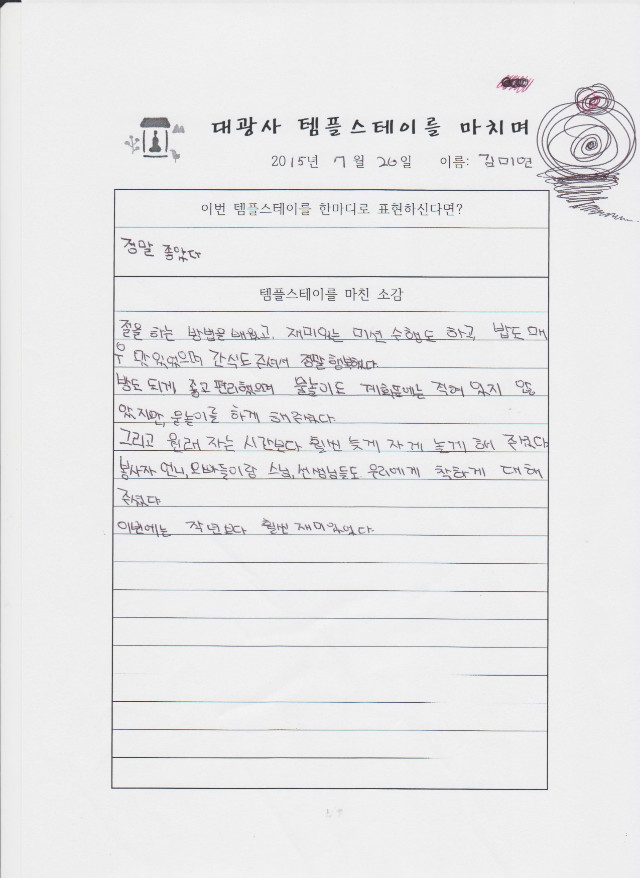 대광사 템플스테이를 마치며
2015년 7월 26일 이름: 김미연
이번 템플스테이를 한마디로 표현하신다면?
정말 좋았다
템플스테이를 마친 소감
절을 하는 방법을 배웠고, 재미있는 미션 수행도 하고, 밥도 매
우 맛있었으며 간식도 주셔서 정말 행복했다.
방도 되게 좋고 편리했으며 물놀이도 계획표에는 적혀 있지 않
았지만, 물놀이를 하게 해주셨다.
그리고 원래 자는 시간보다 훨씬 늦게 자게 놀게 해 주셨다
봉사자 언니,오빠들이랑 스님,선생님들도 우리에게 착하게 대해
주셨다
이번에는 작년보다 훨씬 재미있었다.